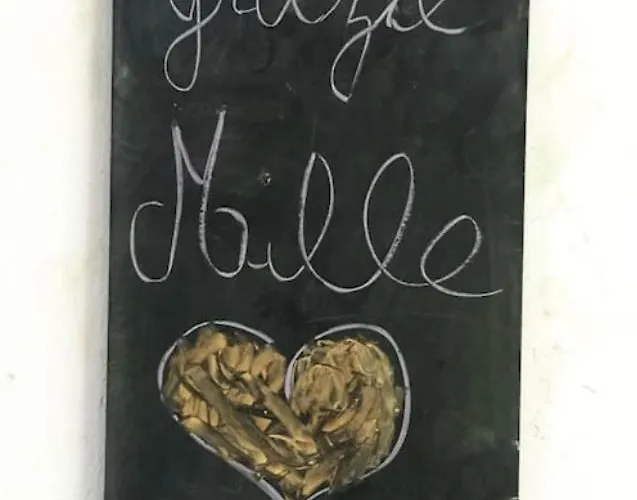 grazie
Mille